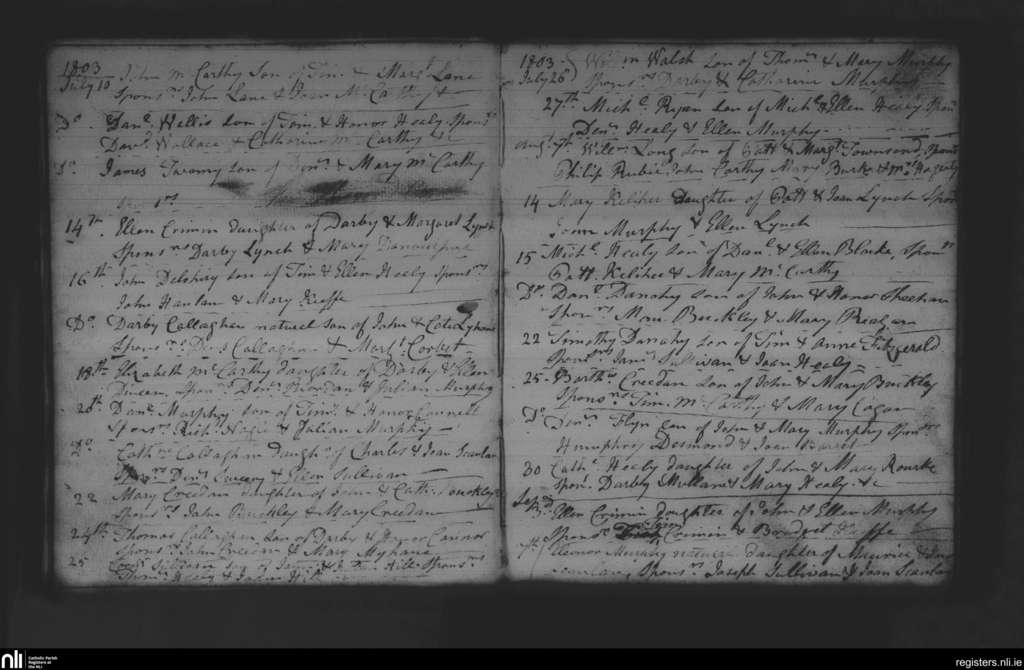 1803
July 10 John McCarthy Son of Tim. & Marg.t Lane
Spons.rs John Lane & Joan McCarthy
Do. Dan.l Wallis son of Tim. & Honor Healy Spons.rs
Dan.l Wallace & Catharine McCarthy
Do. James Twomy son of Den.s & Mary McCarthy
14th Ellen Crimin daughter of Darby & Margaret Lynch
Spons.rs Darby Lynch & Mary
16th John son of Tim & Ellen Healy Spons.rs
John Hanlan & Mary Keeffe
Do. Darby Callaghan natural son of John & Cate
Spons.rs Den.s Callaghan & Marg.t Corbet
18th Elizabeth McCarthy daughter of Darby & Ellen
Spons.rs Den.s Riordan & Julian Murphy
20th Dan.l Murphy son of Tim.y & Honor Connell
Spons.rs Rich.d & Julian Murphy
Do. Cath.n Callaghan daugh.r of Charles & Joan Scanlan
Spons.rs Den.s & Ellen Sullivan
22 Mary Creedan daughter of & Cath. Buckley
Spons.rs John Buckley & Mary Creedan
24th Thomas Callaghan son of Darby & Honor Connor
Spons.rs John Creedan & Mary
25 Sullivan son of & Spons.rs
Healy &
1803
July 26 Will.m Walsh son of Thom.s & Mary Murphy
Spons.rs Darby & Catharine Murphy
27th Mich.l Ryan son of Mich.l & Ellen Healy Spons.
Den.s Healy & Ellen Murphy
Aug.t 7th Will.m Long son of Patt & Marg.t Townsend, Spons.rs
Philip Rubie John Carthy Mary Burke & Mrs Hagerty
14 Mary Keliher daughter of Patt & Joan Lynch Spons.
John Murphy & Ellen Lynch
15 Mich.l Healy son of Dan.l & Ellen Blake, Spon.rs
Patt. Keliher & Mary McCarthy
Do. Dan.l Danahy son of John & Honor Sheehan
Spons.rs Buckley & Mary Reagan
22 Timothy Danahy son of Tim & Anne Fitzgerald
Spons.rs Jam.s Sullivan & Joan Healy
25. Barth.w Creedan son of John & Mary Buckley
Spons.rs Tim. McCarthy & Mary Cagan
Do. Den.s Flyn son of John & Mary Murphy Spons.rs
Humphrey Desmond & Joan Barrett
30 Cath.n Healy daughter of John & Mary Rourke
Spon. Darby Mullane & Mary Healy &c
Sep. 3rd Ellen Crimin daughter of John & Ellen Murphy
Spons.rs Crimin & Bridget Keeffe
Eleonor Murphy natural daughter of Maurice &
Scanlan, Spons.rs Joseph Sullivan & Joan Scanlan
nli
Catholic Parish
Registers at
the NLI
registers.nli.ie